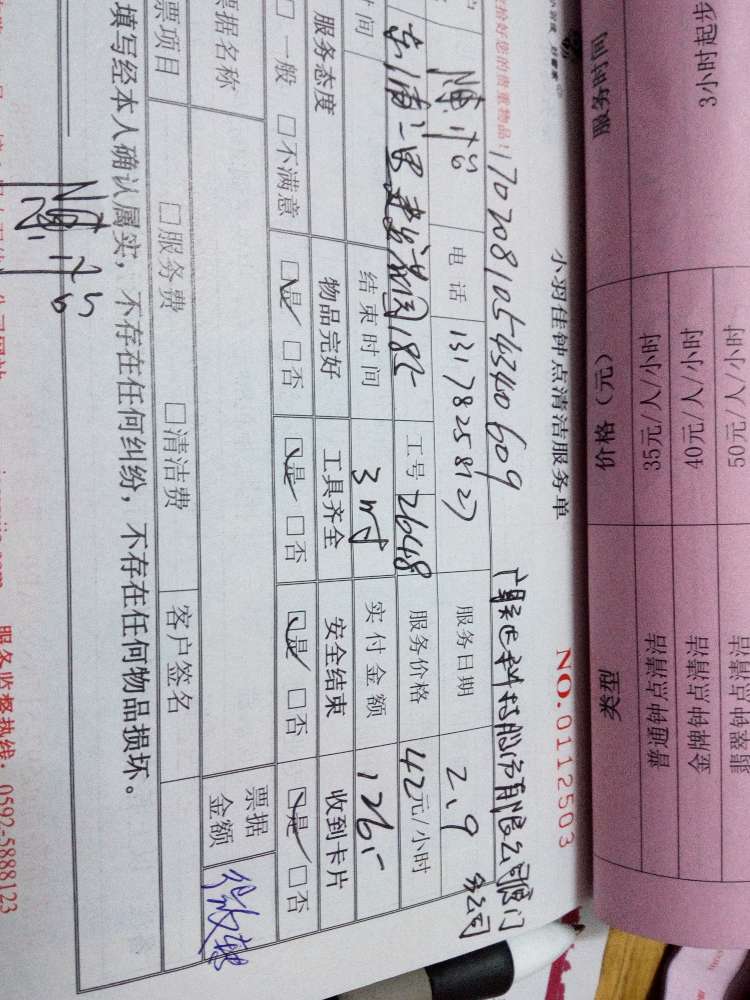 服务时间
3小时起步
价格（元）
35元/人/小时
40元/人/小时
50元/人/小时
类型
普通钟点清洁
金牌钟点清洁
翡翠钟点清洁
小羽佳钟点清洁服务单
NO.0112503
您的贵重物品！
1702081054340609
有限公司厦门
分公司
电话
13178258127
服务日期
2.9
工号
2648
服务价格
42元/小时
结束时间
3时
实付金额
126.-
服务态度
物品完好
工具齐全
安全结束
收到卡片
□一般 □不满意
□是 □否
□是 □否
□是 □否
□是 □否
票据名称
票据
金额
微转
票项目
□服务费
□清洁费
客户签名
填写经本人确认属实，不存在任何纠纷，不存在任何物品损坏。
服务监督热线：0592-5888123